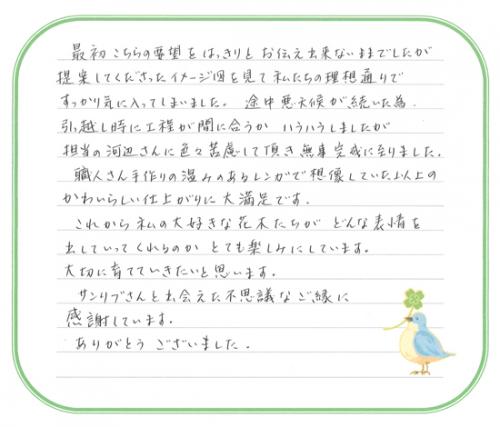 最初こちらの要望をはっきりとお伝え出来ないままでしたが
提案してくださったイメージ図を見て私たちの理想通りで
すっかり気に入ってしまいました。 途中悪天候が続いた為、
引越し時に工程が間に合うか ハラハラしましたが
担当の河辺さんに色々苦慮して頂き無事完成に至りました。
職人さん手作りの温みのあるレンガで想像していた以上の
かわいらしい仕上がりに大満足です。
これから私の大好きな花木たちが どんな表情を
出していってくれるのか とても楽しみにしています。
大切に育てていきたいと思います。
サンリブさんと出会えた不思議なご縁に
感謝しています。
ありがとう ございました。